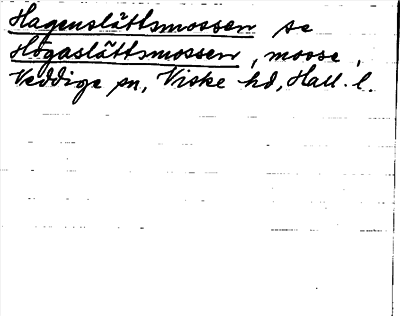 Hagenslättsmossen se
Högaslättsmossen, mosse,
Veddige sn, Viske hd, Hall. l.